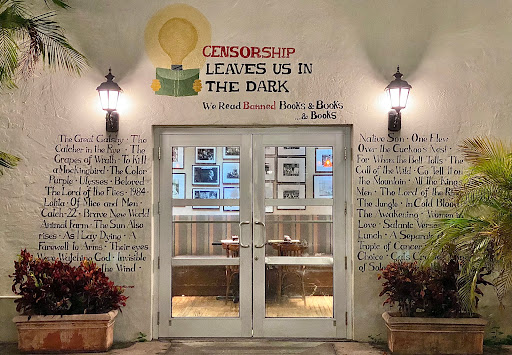 CENSORSHIP
LEAVES US IN
THE DARK
We Read Banned Books & Books
... & Books
The Great Gatsby · The
Catcher in the Rye · The
Grapes of Wrath · To Kill
a Mockingbird · The Color
Purple · Ulysses · Beloved
The Lord of the Flies · 1984
Lolita · Of Mice and Men ·
Catch 22 · Brave New World
Animal Farm · The Sun Also
rises · As I Lay Dying · A
Farewell to Arms · Their eyes
Were Watching God · Invisible
the Wind ·
Native Son · One Flew
Over the Cuckoo's Nest ·
For Whom the Bell Tolls · The
Call of the Wild · Go Tell it on
the Mountain · All The King's
Men · The Lord of the
The Jungle · in Cold Blood
The Awakening · Women
Love · Satanic Verses
Lunch · A Separate
Tropic of Cancer
Choice